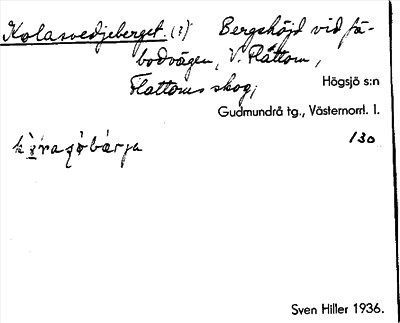 Kolasvedjeberget. (?) Bergshöjd vid fä-
bodvägen, V. Flåttom,
Flattoms skog;
Högsjö s:n
Gudmundrå tg., Västernorrl. l.
130
Sven Hiller 1936.